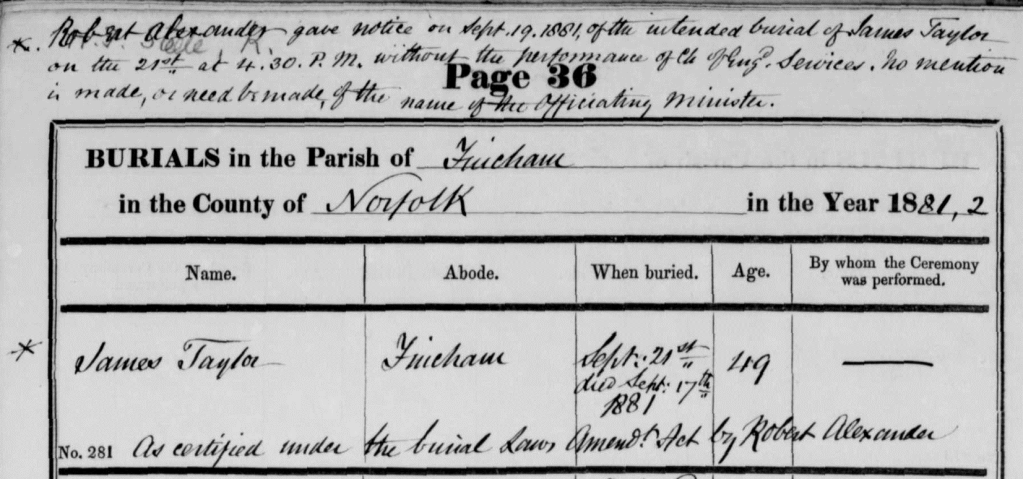 *. Robert Alexander gave notice on Sept. 19. 1881, of the intended burial of James Taylor
on the 21st at 4.30. P.M. without the performance of Ch of Eng.d Services. No mention
Page 36
is made, or need be made, of the name of the Officiating Minister.
BURIALS in the Parish of Fincham
in the County of Norfolk in the Year 1881,2
Name. Abode. When buried. Age. By whom the Ceremony
was performed.
* James Taylor Fincham Sept: 21st 49 —
died Sept: 17th
1881
No. 281 As certified under the burial Laws Amendt. Act by Robert Alexander